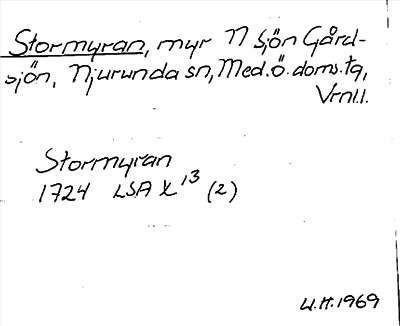 Stormyran, myr N Sjön Gård-
sjön, Njurunda sn, Med. ö. doms. tg,
Vrnl.l.
Stormyran
1724 LSA X 13 (2)
U.H. 1969